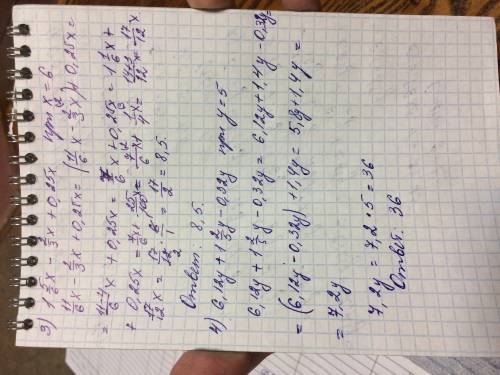 3) 1 5/6 x - 2/3 x + 0,25x при x = 6
11/6 x - 2/3 x + 0,25x = (11/6 x - 2/3 x) + 0,25x =
= 11-4/6 x + 0,25x = 7/6 x + 0,25x = 1 1/6 x +
+ 0,25x = 7/6 x + 25/100 x = 7/6 x + 1/4 x = 14+3/12 x = 17/12 x
17/12 x = 17/12 · 6/1 = 17/2 = 8,5.
Ответ: 8,5.
4) 6,12y + 1 2/5 y - 0,32y при y = 5
6,12y + 1 2/5 y - 0,32y = 6,12y + 1,4y - 0,32y =
= (6,12y - 0,32y) + 1,4y = 5,8y + 1,4y =
= 7,2y
7,2y = 7,2 · 5 = 36
Ответ: 36